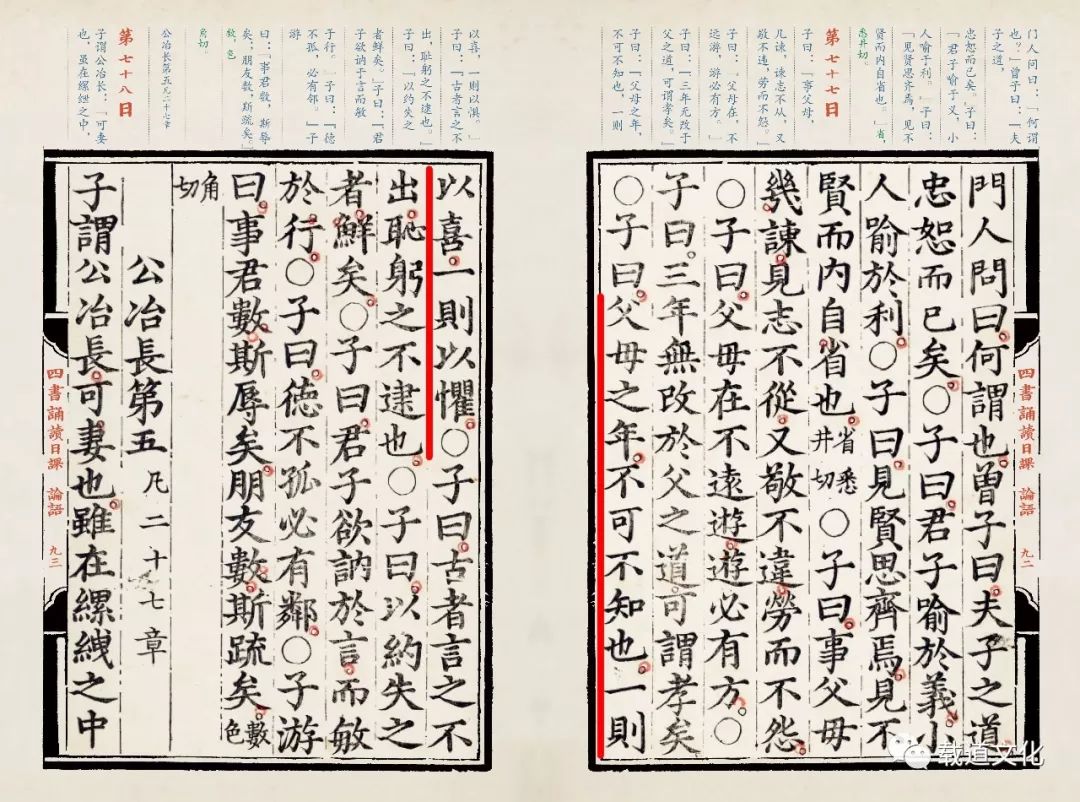 门人问曰:「何谓
也?」曾子曰:「夫
子之道,
忠恕而已矣。」子曰:
「君子喻于义,小
人喻于利。」子曰:
「见贤思齐焉,见不
贤而内自省也。」省,
悉井切。
第七十七日
子曰:「事父母,
几谏,谏志不从,又
敬不违,劳而不怨。」
子曰:「父母在,不
远游,游必有方。」
子曰:「三年无改于
父之道,可谓孝矣。」
子曰:「父母之年,
不可不知也,一则
門人問曰何謂也曾子曰夫子之道
忠恕而已矣○子曰君子喻於義小
人喻於利○子曰見賢思齊焉見不
賢而内自省也省悉井切○子曰事父母
幾諫見志不從又敬不違勞而不怨
○子曰父母在不遠遊遊必有方○
子曰三年無改於父之道可謂孝矣
○子曰父母之年不可不知也一則
四書誦讀日課 論語 九二
以喜,一则以惧。」
子曰:「古者言之不
出,耻躬之不逮也。」
子曰:「以约失之
者鲜矣。」子曰:「君
子欲讷于言而敏
于行。」子曰:「德
不孤,必有邻。」子
游
曰:「事君数,斯辱
矣;朋友数,斯疏矣。」
数,色
角切。
公冶长第五凡二十七章
第七十八日
子谓公冶长:「可妻
也,虽在缧绁之中,
以喜一則以懼○子曰古者言之不
出恥躬之不逮也○子曰以約失之
者鮮矣○子曰君子欲訥於言而敏
於行○子曰德不孤必有鄰○子游
曰事君數斯辱矣朋友數斯疏矣數色
角切
公冶長第五 凡二十七章
子謂公冶長可妻也雖在縲絏之中
四書誦讀日課 論語 九三
载道文化